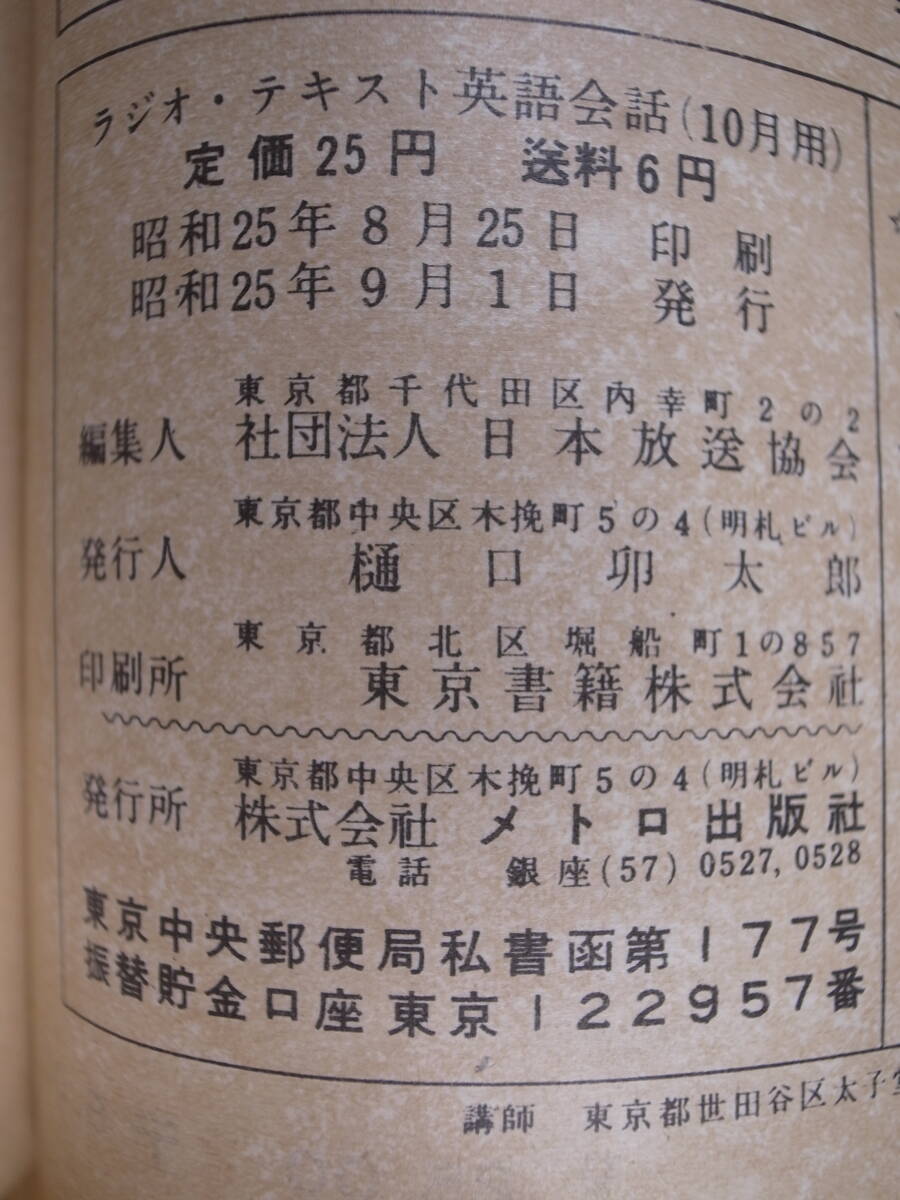 ラジオ・テキスト英語会話(10月用)
定価25円 送料6円
昭和25年8月25日 印刷
昭和25年9月1日 発行
東京都千代田区内幸町2の2
編集人 社団法人 日本放送協会
東京都中央区木挽町5の4(明札ビル)
発行人 樋口卯太郎
東京都北区堀船町1の857
印刷所 東京書籍株式会社
東京都中央区木挽町5の4(明札ビル)
発行所 株式会社 メトロ出版社
電話 銀座(57) 0527, 0528
東京中央郵便局私書函第177号
振替貯金口座 東京122957番
講師 東京都世田谷区太子堂